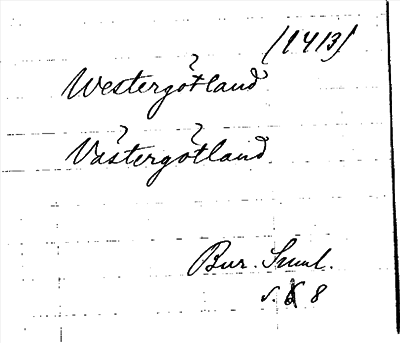 (1413)
Westergötland
Västergötland
Bur. Suml.
s. 8